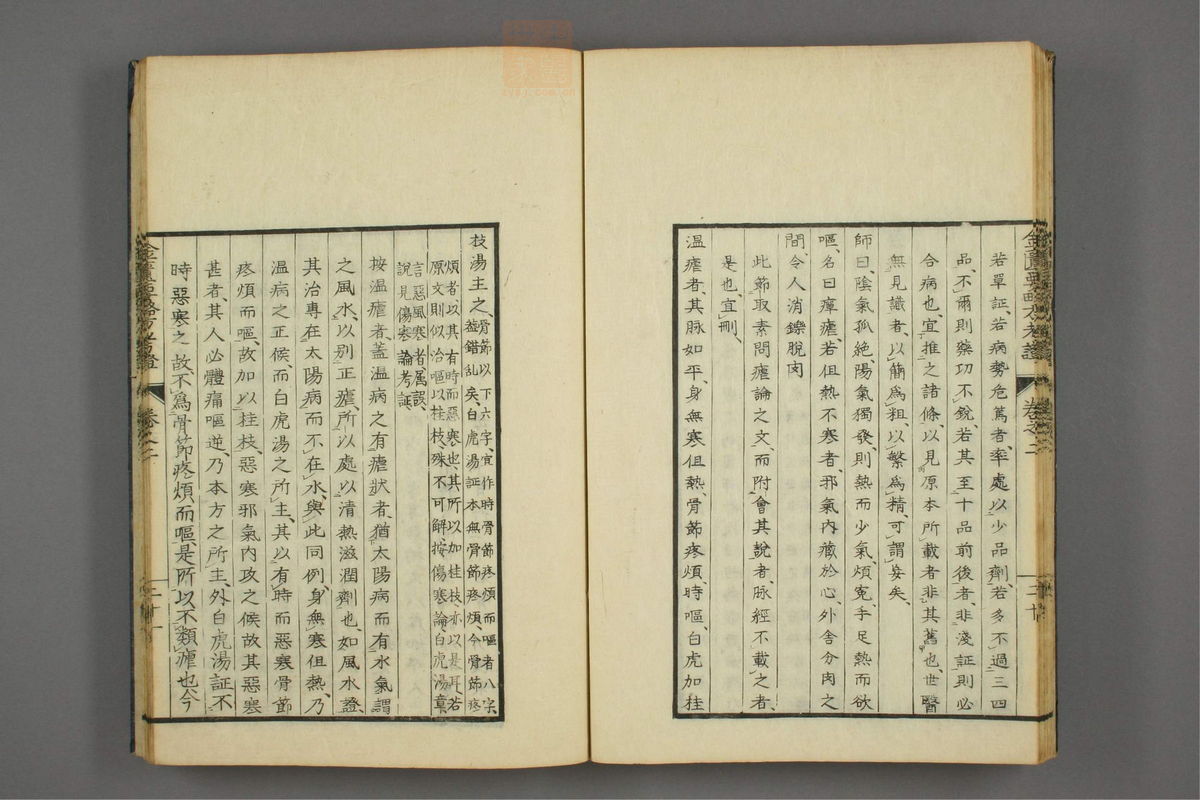 金匱要略方考證 卷之二 二十
若單証、若病勢危篤者、率處以少品劑、若多不過三四
品、不爾則藥功不銳、若其至十品前後者、非淺証、則必
合病也、宜推之諸條、以見原本所載者非其舊也、世醫
無見識者、以簡爲粗、以繁爲精、可謂妄矣、
師曰、陰氣孤絶、陽氣獨發、則熱而少氣、煩寃、手足熱而欲
嘔、名曰癉瘧、若但熱不寒者、邪氣內藏於心、外舍分肉之
間、令人消鑠脫肉
此節取素問瘧論之文、而附會其說者、脉經不載之者、
是也、宜刪、
溫瘧者、其脉如平、身無寒但熱、骨節疼煩、時嘔、白虎加桂
枝湯主之、骨節以下六字、宜作時骨節疼煩而嘔者八字、
葢錯亂矣、白虎湯証本無骨節疼煩、今骨節疼
煩者、以其有時而惡寒也、其所以加桂枝、亦以是耳、若
原文則似治嘔以桂枝、殊不可解、按傷寒論白虎湯章、
言惡風寒者屬誤、
說見傷寒論考証、
按溫瘧者、蓋溫病之有瘧狀者、猶太陽病而有水氣謂
之風水、以別正瘧、所以處以清熱滋潤劑也、如風水證、
其治專在太陽病而不在水、與此同例、身無寒但熱、乃
溫病之正候、而白虎湯之所主、其以有時而惡寒骨節
疼煩而嘔、故加以桂枝、惡寒邪氣內攻之候、故其惡寒
甚者、其人必體痛嘔逆、乃本方之所主、外白虎湯証不
時惡寒之 故不爲骨節疼煩而嘔、是所以不類瘧也、今
金匱要略方考證 卷之二 二十一